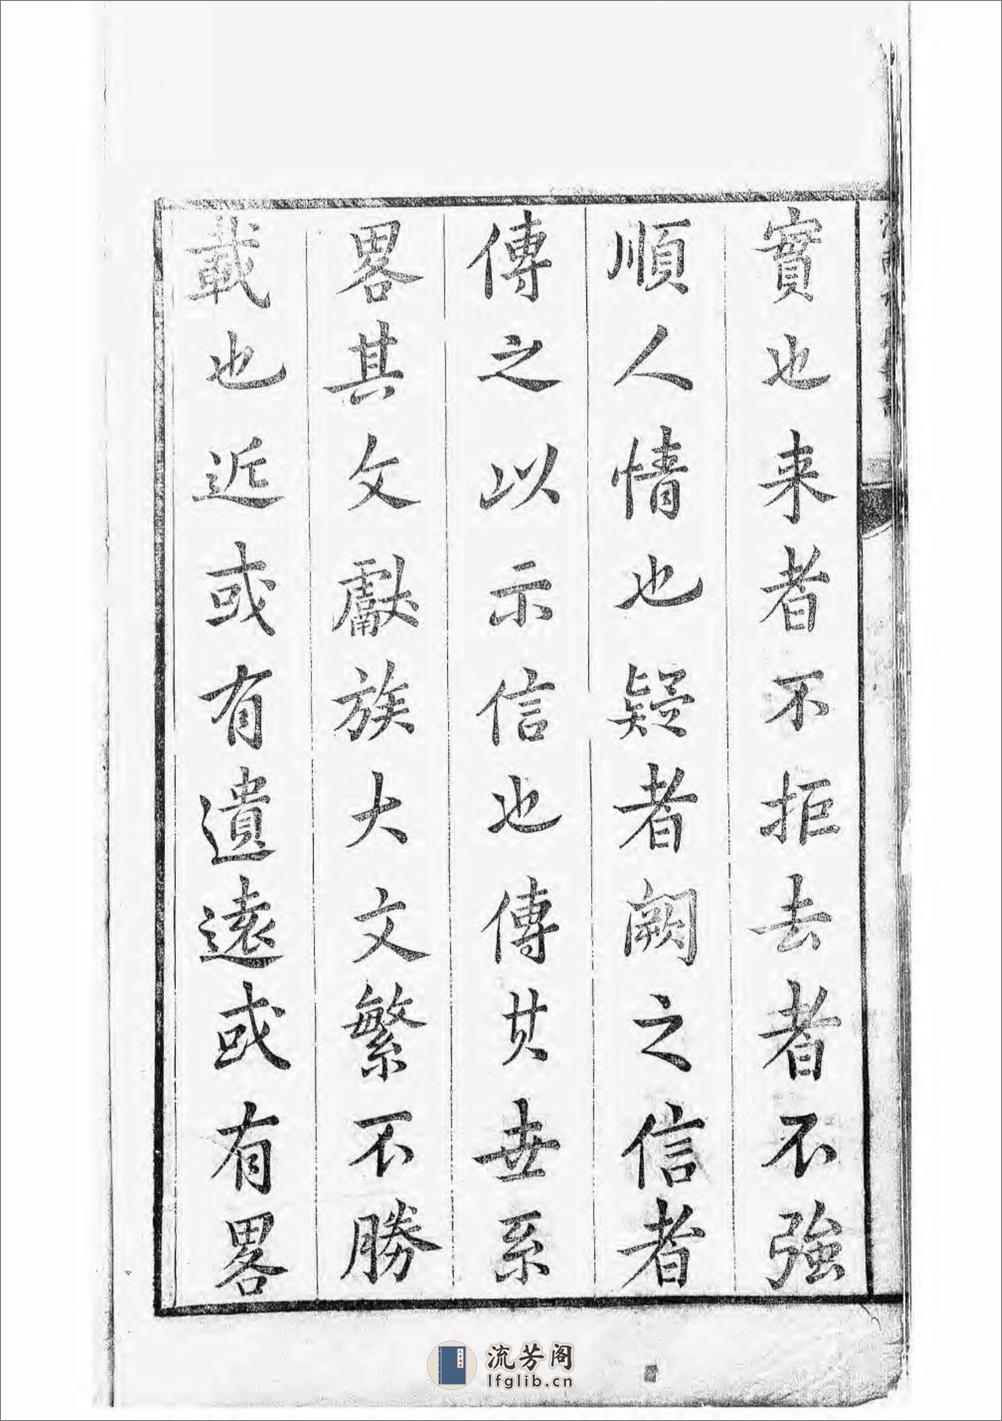 實也来者不拒去者不強
順人情也疑者闕之信者
傳之以示信也傳其世系
畧其文獻族大文繁不勝
載也近或有遺遠或有畧
流芳阁
lfglib.cn